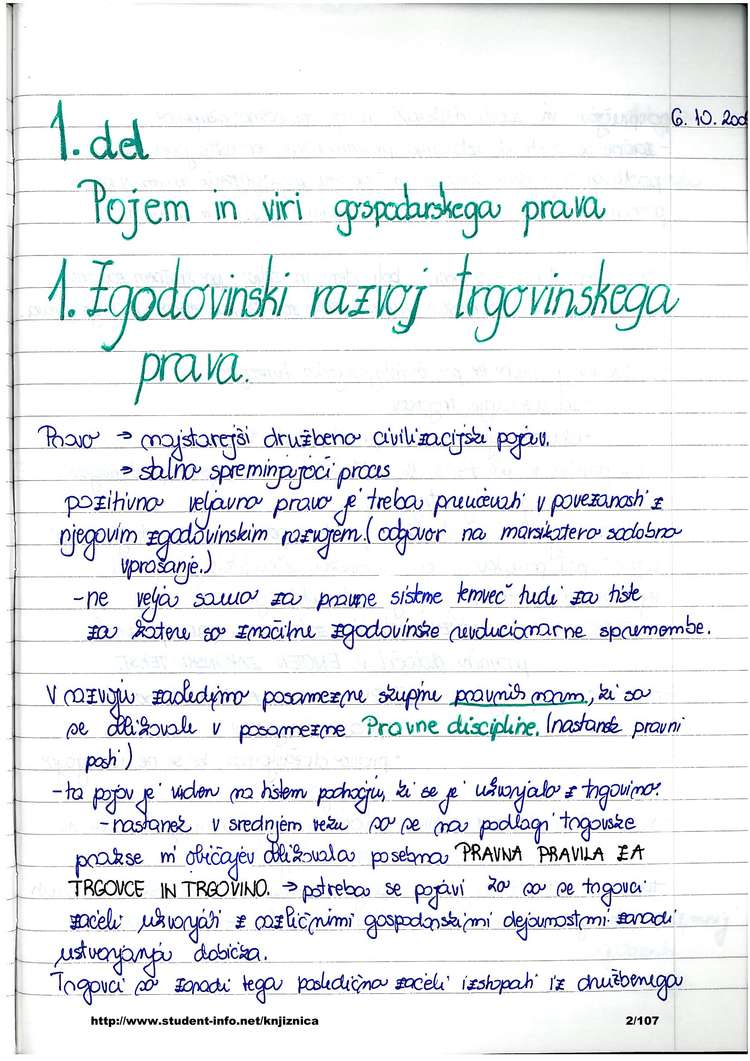 6. 10. 200
1. del
Pojem in viri gospodarskega prava
1. Zgodovinski razvoj trgovinskega
prava.
Pravo → najstarejši družbeno civilizacijski pojav.
→ stalno spreminjajoči proces
pozitivno veljavno pravo je treba preučevati v povezanosti z
njegovim zgodovinskim razvojem. (odgovor na marsikatero sodobno
vprašanje.)
- ne velja samo za pravne sisteme temveč tudi za tiste
za katere so značilne zgodovinske revolucionarne spremembe.
V razvoju zasledimo posamezne skupine pravnih norm, ki so
se oblikovale v posamezne Pravne discipline. (nastanek pravni
)
- ta pojav je viden na tistem področju, ki se je ukvarjalo s trgovino.
- nastanek v srednjem veku so se na podlagi trgovske
prakse in običajev oblikovala posebna PRAVNA PRAVILA ZA
TRGOVCE IN TRGOVINO. → potreba se pojavi ko so se trgovci
začeli ukvarjati z različnimi gospodarskimi dejavnostmi zaradi
ustvarjanja dobička.
Trgovci so zaradi tega posledično začeli izstopati iz družbenega
http://www.student-info.net/knjiznica
2/107